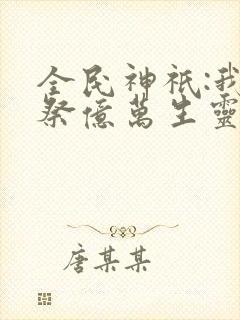 全民神祇:我
祭億萬生靈
唐某某